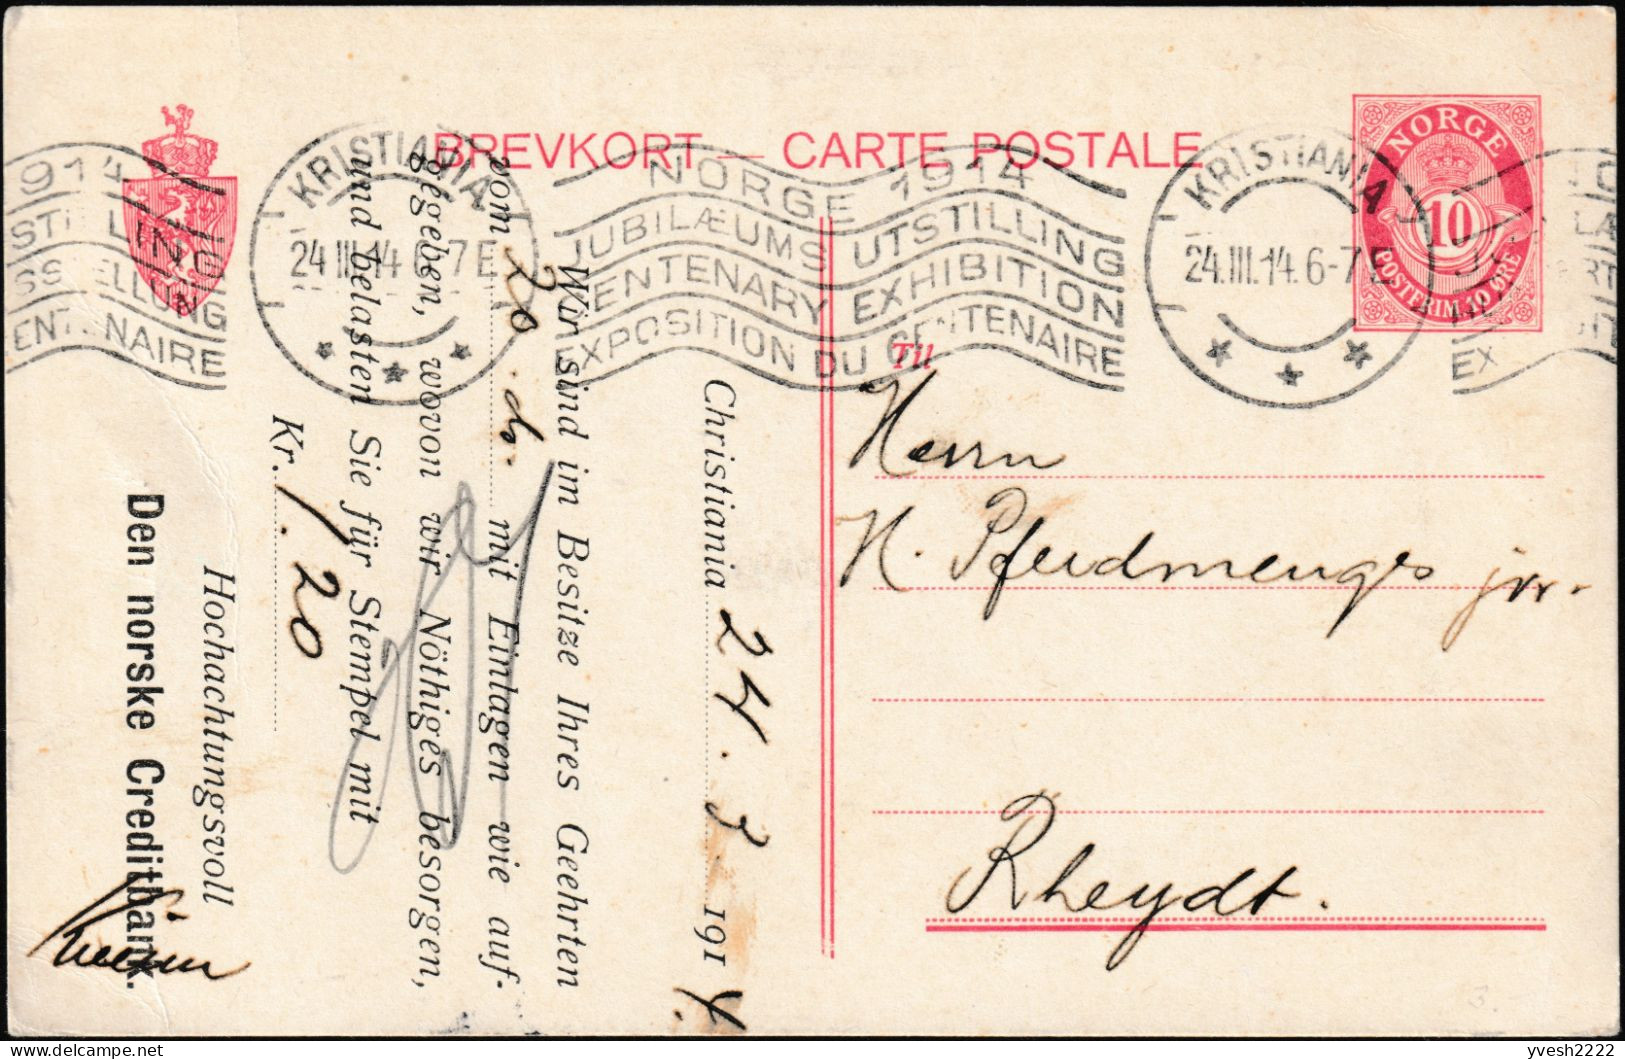 BREVKORT — CARTE POSTALE
NORGE
10
POSTFRIM. 10 ØRE
KRISTIANIA
24.III.14. 6-7 E
NORGE 1914
JUBILÆUMS UTSTILLING
CENTENARY EXHIBITION
EXPOSITION DU CENTENAIRE
KRISTIANIA
24.III.14. 6-7 E
Til
Herrn
H. Pferdmenges jr.
Rheydt.
Christiania 24. 3. 1914.
Wir sind im Besitze Ihres Geehrten
vom 20. ds. mit Einlagen wie auf-
gegeben, wovon wir Nöthiges besorgen,
und belasten Sie für Stempel mit
Kr. 1.20
Hochachtungsvoll
Den norske Creditbank.
delcampe.net
yvesh2222